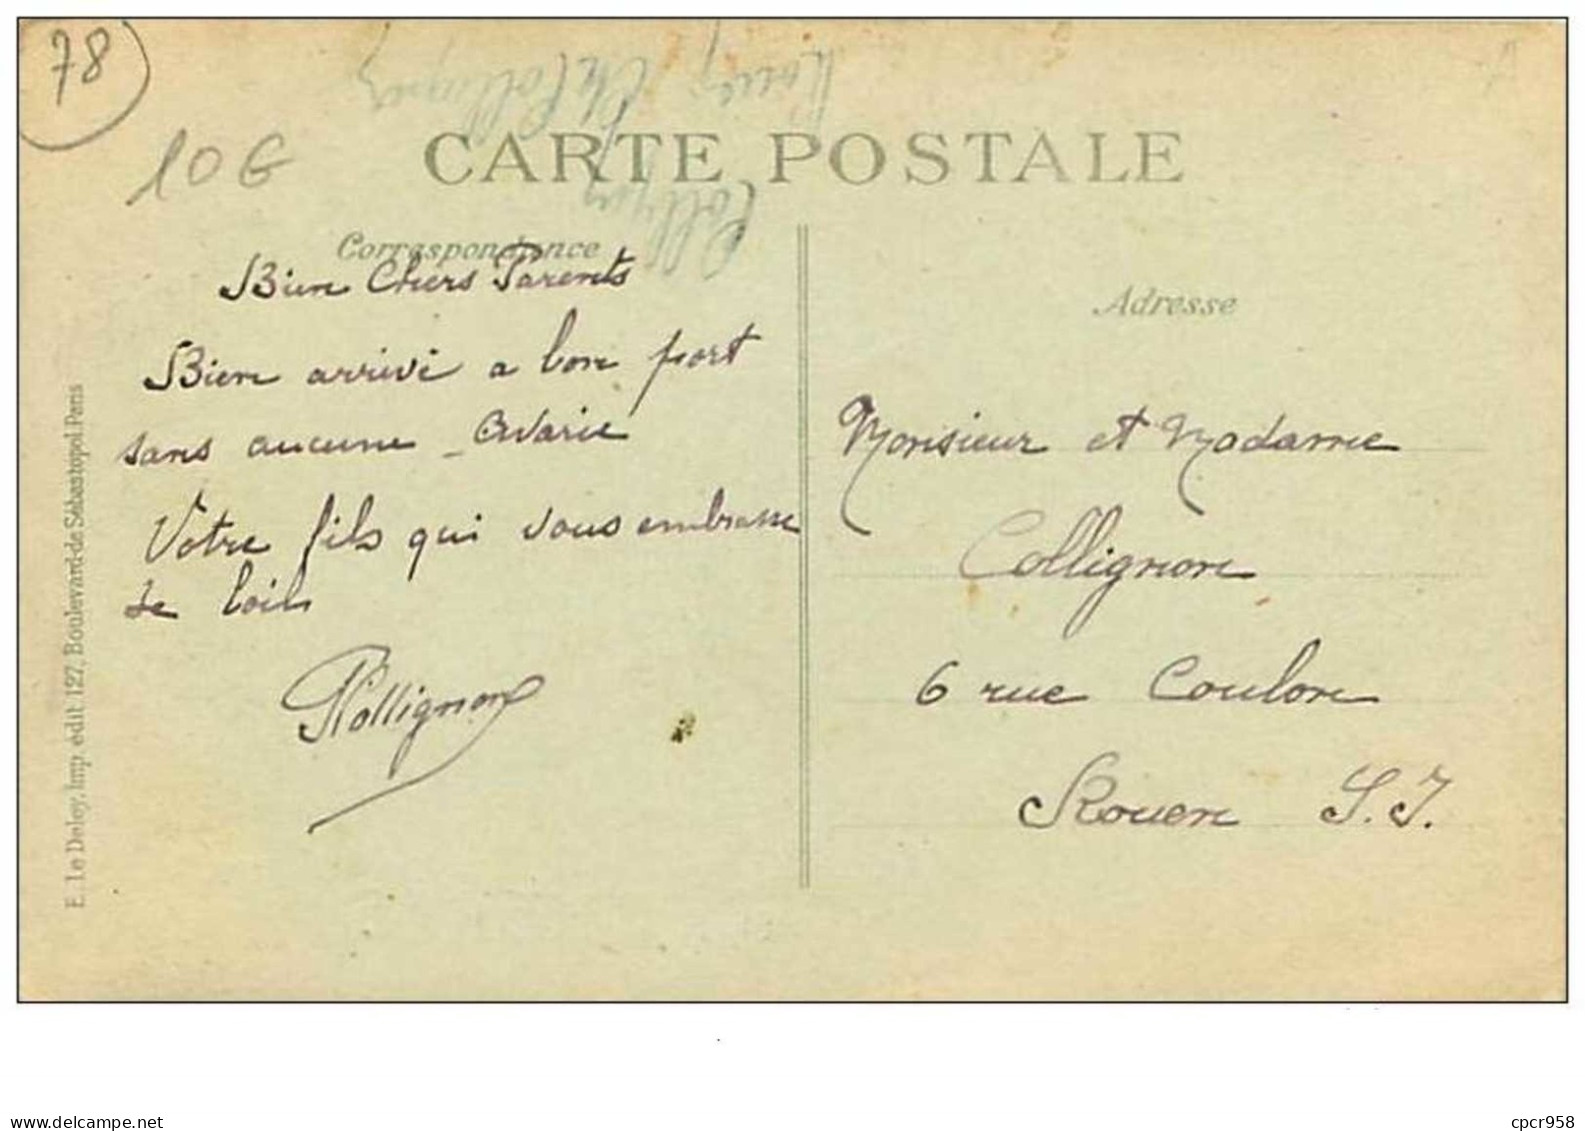 78
10 G
CARTE POSTALE
Correspondance
Bien Chers Parents
Bien arrivé a bon port
sans aucune Avarie
Votre fils qui vous embrasse
de loin
Collignon
Adresse
Monsieur et Madame
Collignon
6 rue Coulon
Rouen S. I.
E. Le Deley, Imp. édit. 127, Boulevard de Sébastopol. Paris
www.delcampe.net
cpcr958